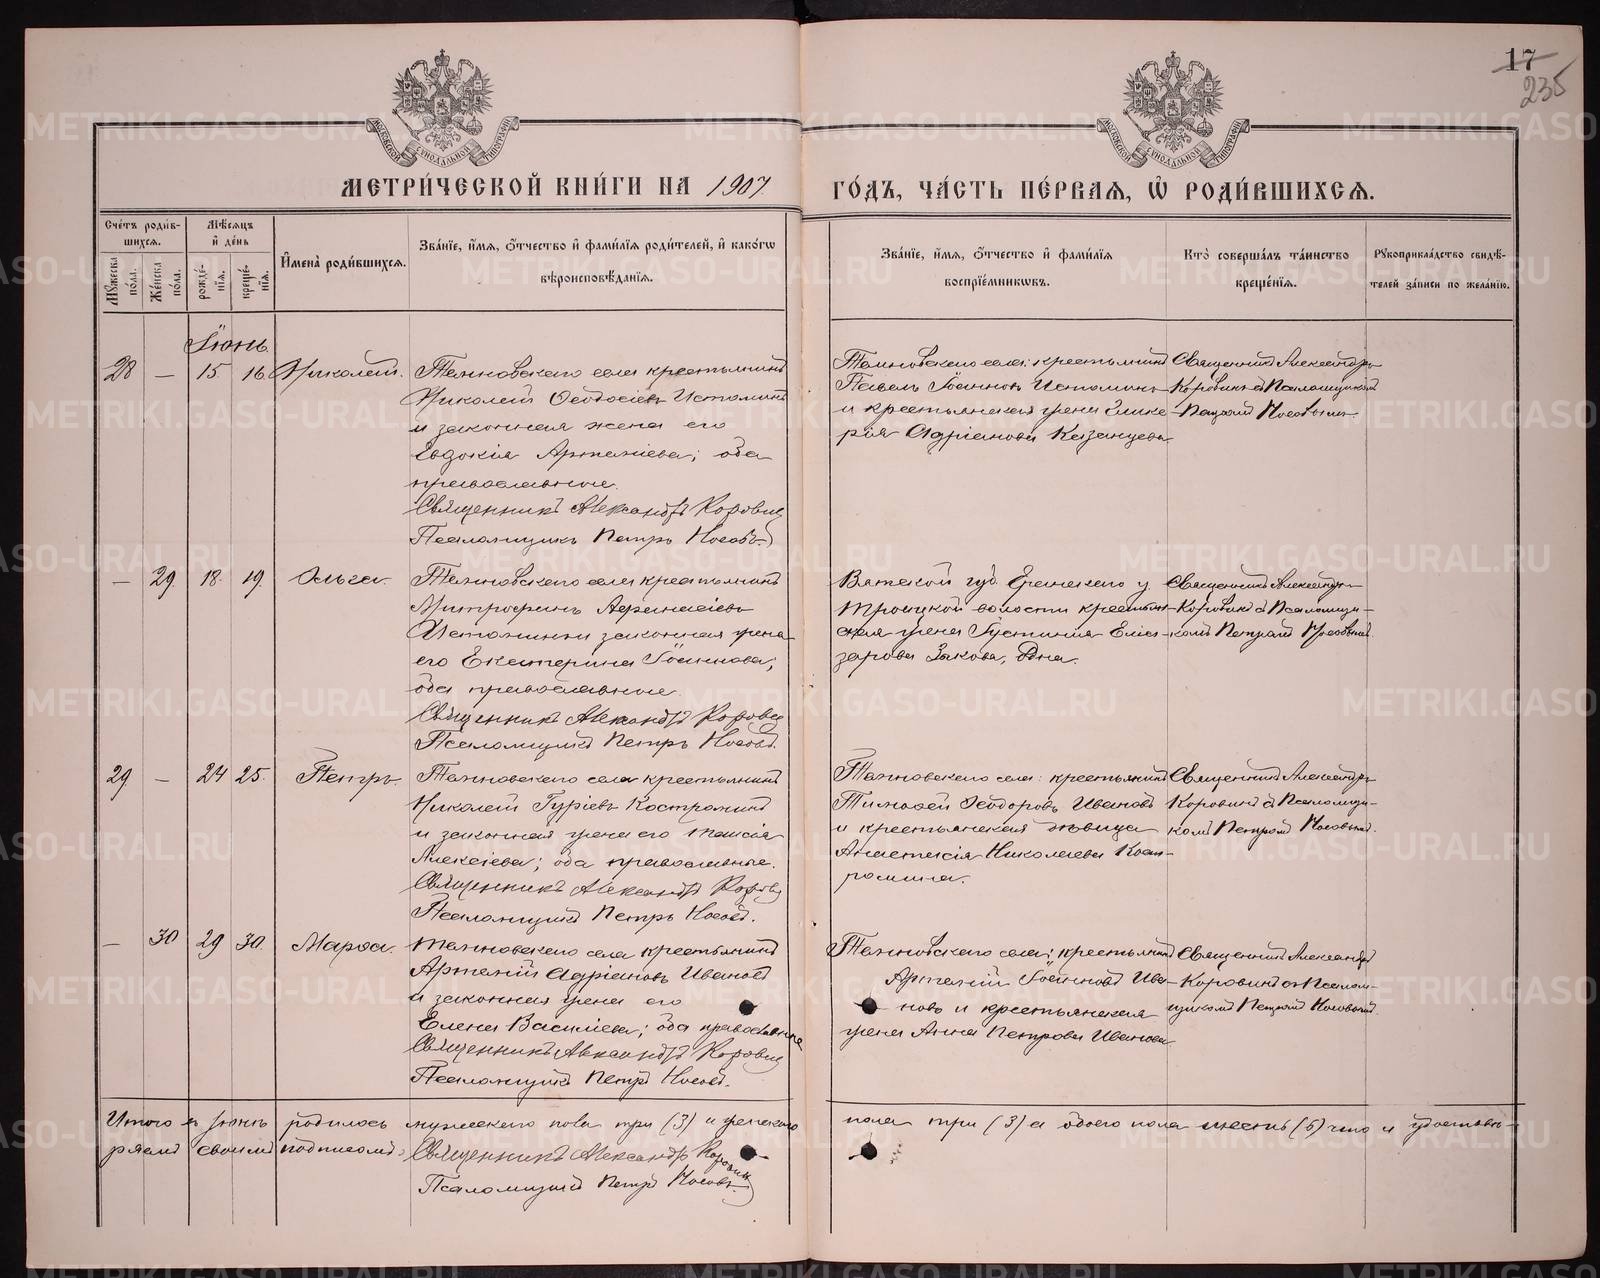 17
235
МОСКОВСКОЙ СѴНОДАЛЬНОЙ ТИПОГРАФІИ
МОСКОВСКОЙ СѴНОДАЛЬНОЙ ТИПОГРАФІИ
МЕТРИ́ЧЕСКОЙ КНИ́ГИ НА 1907 ГО́ДЪ, ЧА́СТЬ ПЕ́РВАЯ, Ѡ РОДИ́ВШИХСЯ.
Сче́тъ роди́в-
шихся.
Мѣ́сяцъ
и҆ де́нь
Мꙋ́жеска по́ла.
Же́нска по́ла.
рожде́-
нїя.
креще́-
нїя.
И҆мена̀ роди́вшихся.
Зва́нїе, и҆́мя, ѻ҆́тчество и҆ фами́лїя роди́телей, и҆ како́гѡ
вѣроисповѣ́данїя.
Зва́нїе, и҆́мя, ѻ҆́тчество и҆ фами́лїя
воспрїе́мникѡвъ.
Кто̀ соверша́лъ та́инство
креще́нїя.
Рꙋкоприкла́дство свидѣ́-
телей за́писи по жела́нїю.
Іюнь.
28 — 15. 16. Николай.
села крестьянинъ
Николай Ѳеодосіевъ Истоминъ
и законная жена его
Евдокія Артеміева; оба
православные.
Священникъ Александръ Коровинъ
Псаломщикъ Петръ Носовъ.
села крестьянинъ
Павелъ Іоанновъ Истоминъ
и крестьянская жена Глике-
рія Адріанова Казанцева
Священникъ Александръ
Коровинъ съ Псаломщикомъ
Петромъ Носовымъ.
— 29. 18. 19. Ольга.
села крестьянинъ
Митрофанъ Аѳанасіевъ
Истоминъ и законная жена
его Екатерина Іоаннова;
оба православные.
Священникъ Александръ Коровинъ
Псаломщикъ Петръ Носовъ.
Вятской губ. у.
Троицкой волости крестьян-
ская жена Іустинія Елиа-
зарова Зыкова, Одна.
Священникъ Александръ
Коровинъ съ Псаломщи-
комъ Петромъ Носовымъ.
29. — 24 25. Петръ.
села крестьянинъ
Николай Гуріевъ Костроминъ
и законная жена его Таисія
Алексіева; оба православные.
Священникъ Александръ Коровинъ
Псаломщикъ Петръ Носовъ.
села: крестьянинъ
Тимоѳей Ѳеодоровъ Ивановъ
и крестьянская дѣвица
Анастасія Николаева Кост-
ромина.
Священникъ Александръ
Коровинъ съ Псаломщи-
комъ Петромъ Носовымъ.
— 30 29 30. Марѳа.
села крестьянинъ
Артемій Адріановъ Ивановъ
и законная жена его
Елена Василіева; оба православные
Священникъ Александръ Коровинъ
Псаломщикъ Петръ Носовъ.
села; крестьянинъ
Артемій Іоанновъ Ива-
новъ и крестьянская
жена Анна Петрова Иванова
Священникъ Александръ
Коровинъ съ Псалом-
щикомъ Петромъ Носовымъ.
Итого въ Іюнь родилось мужескаго пола три (3) и женскаго пола три (3) а обоего пола шесть (6) что и удостовѣ-
ряемъ своимъ подписомъ:
Священникъ Александръ Коровинъ
Псаломщикъ Петръ Носовъ.
METRIKI.GASO-URAL.RU